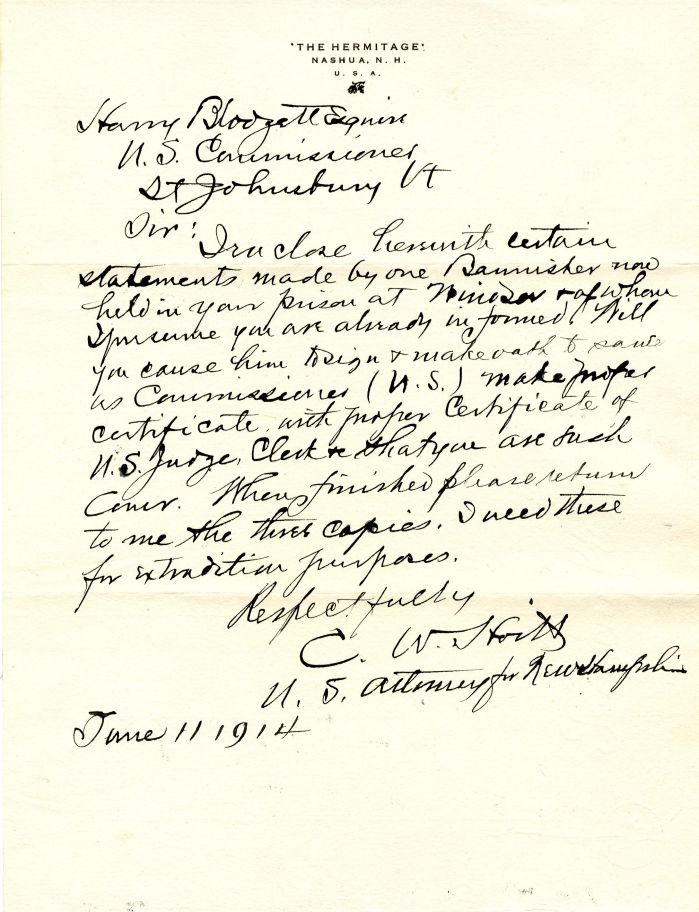 'THE HERMITAGE'
NASHUA, N. H.
U. S. A.
Harry Blodgett Esquire
U. S. Commissioner
St Johnsbury Vt
Sir:
I enclose herewith certain
statements made by one Bannister now
held in your prison at Windsor & of whom
I presume you are already informed. Will
you cause him to sign & make oath to same
as Commissioner (U. S.) make proper
certificate with proper certificate of
U. S. Judge, Clerk & that you are such
Comr. When finished please return
to me the three copies. I need these
for extradition purposes.
Respectfully
C. W. Hoitt
U. S. Attorney for New Hampshire
June 11 1914